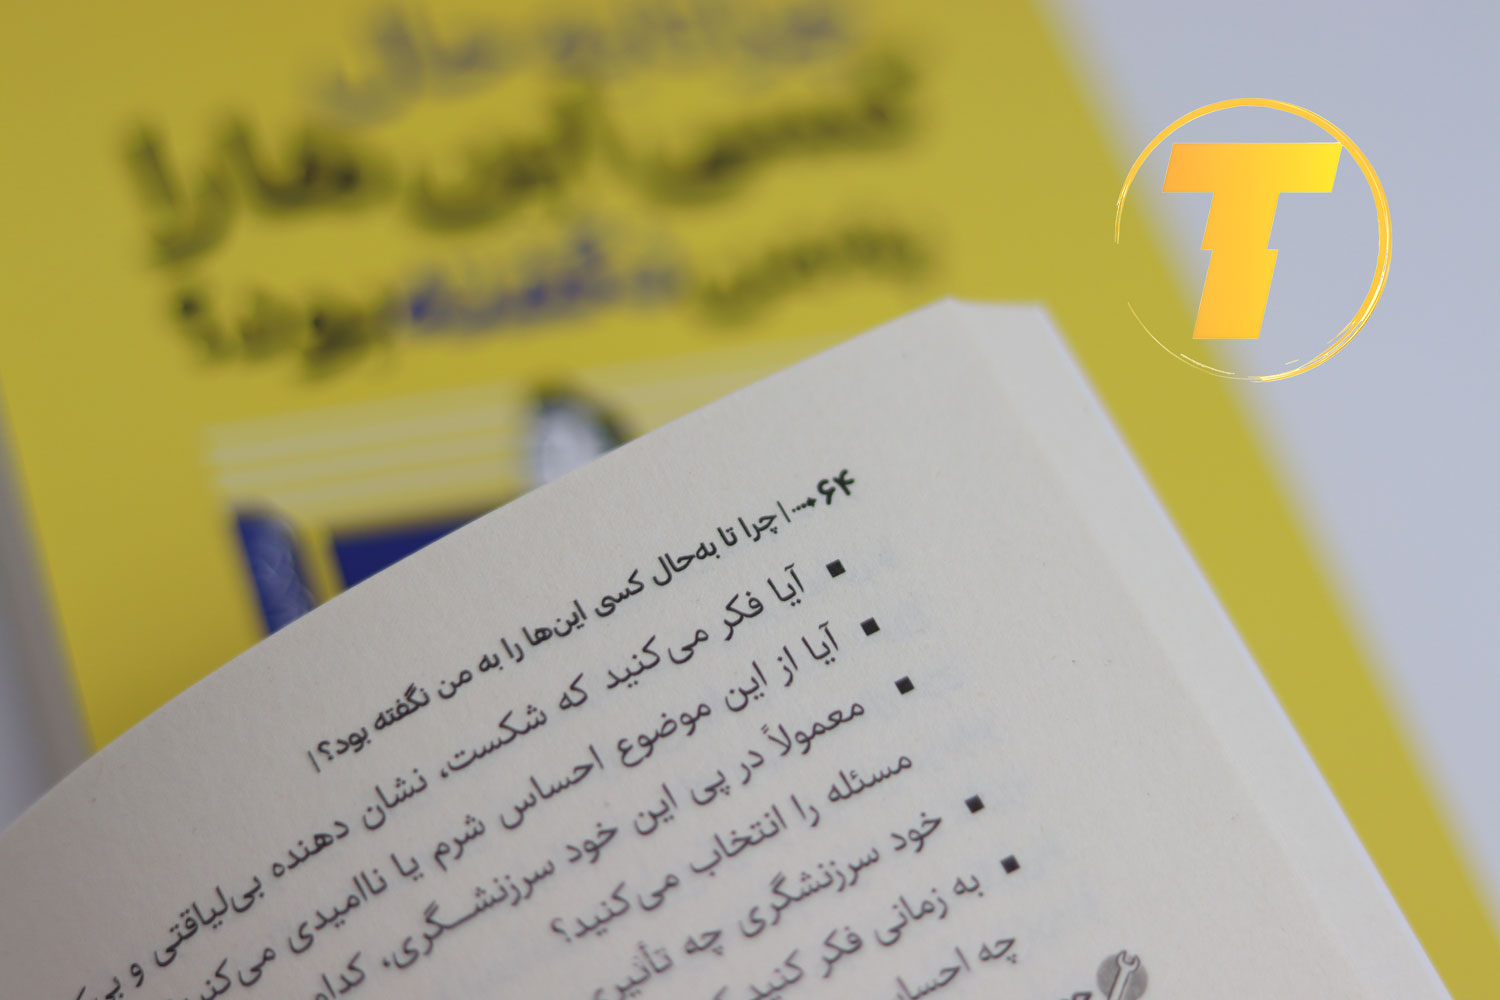 چرا تا به حال
کسی این ها را
به من نگفته بود؟
T
۶۴ | چرا تا به‌حال کسی این‌ها را به من نگفته بود؟ |
▪ آیا فکر می‌کنید که شکست، نشان دهنده بی‌لیاقتی و
▪ آیا از این موضوع احساس شرم یا ناامیدی می‌کنید
▪ معمولاً در پی این خود سرزنشـگری، کدام
مسئله را انتخاب می‌کنید؟
▪ خود سرزنشگری چه تأثیری
▪ به زمانی فکر کنید
چه احساس